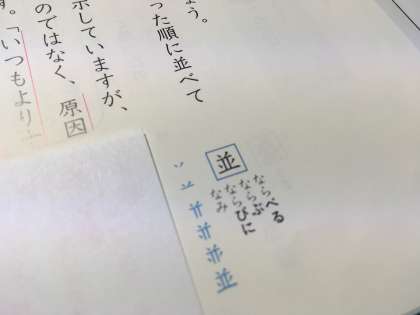 ょう。
った順に並べて
示していますが、
のではなく、原因
す。「いつもより
並
ならべる
ならぶ
ならびに
なみ